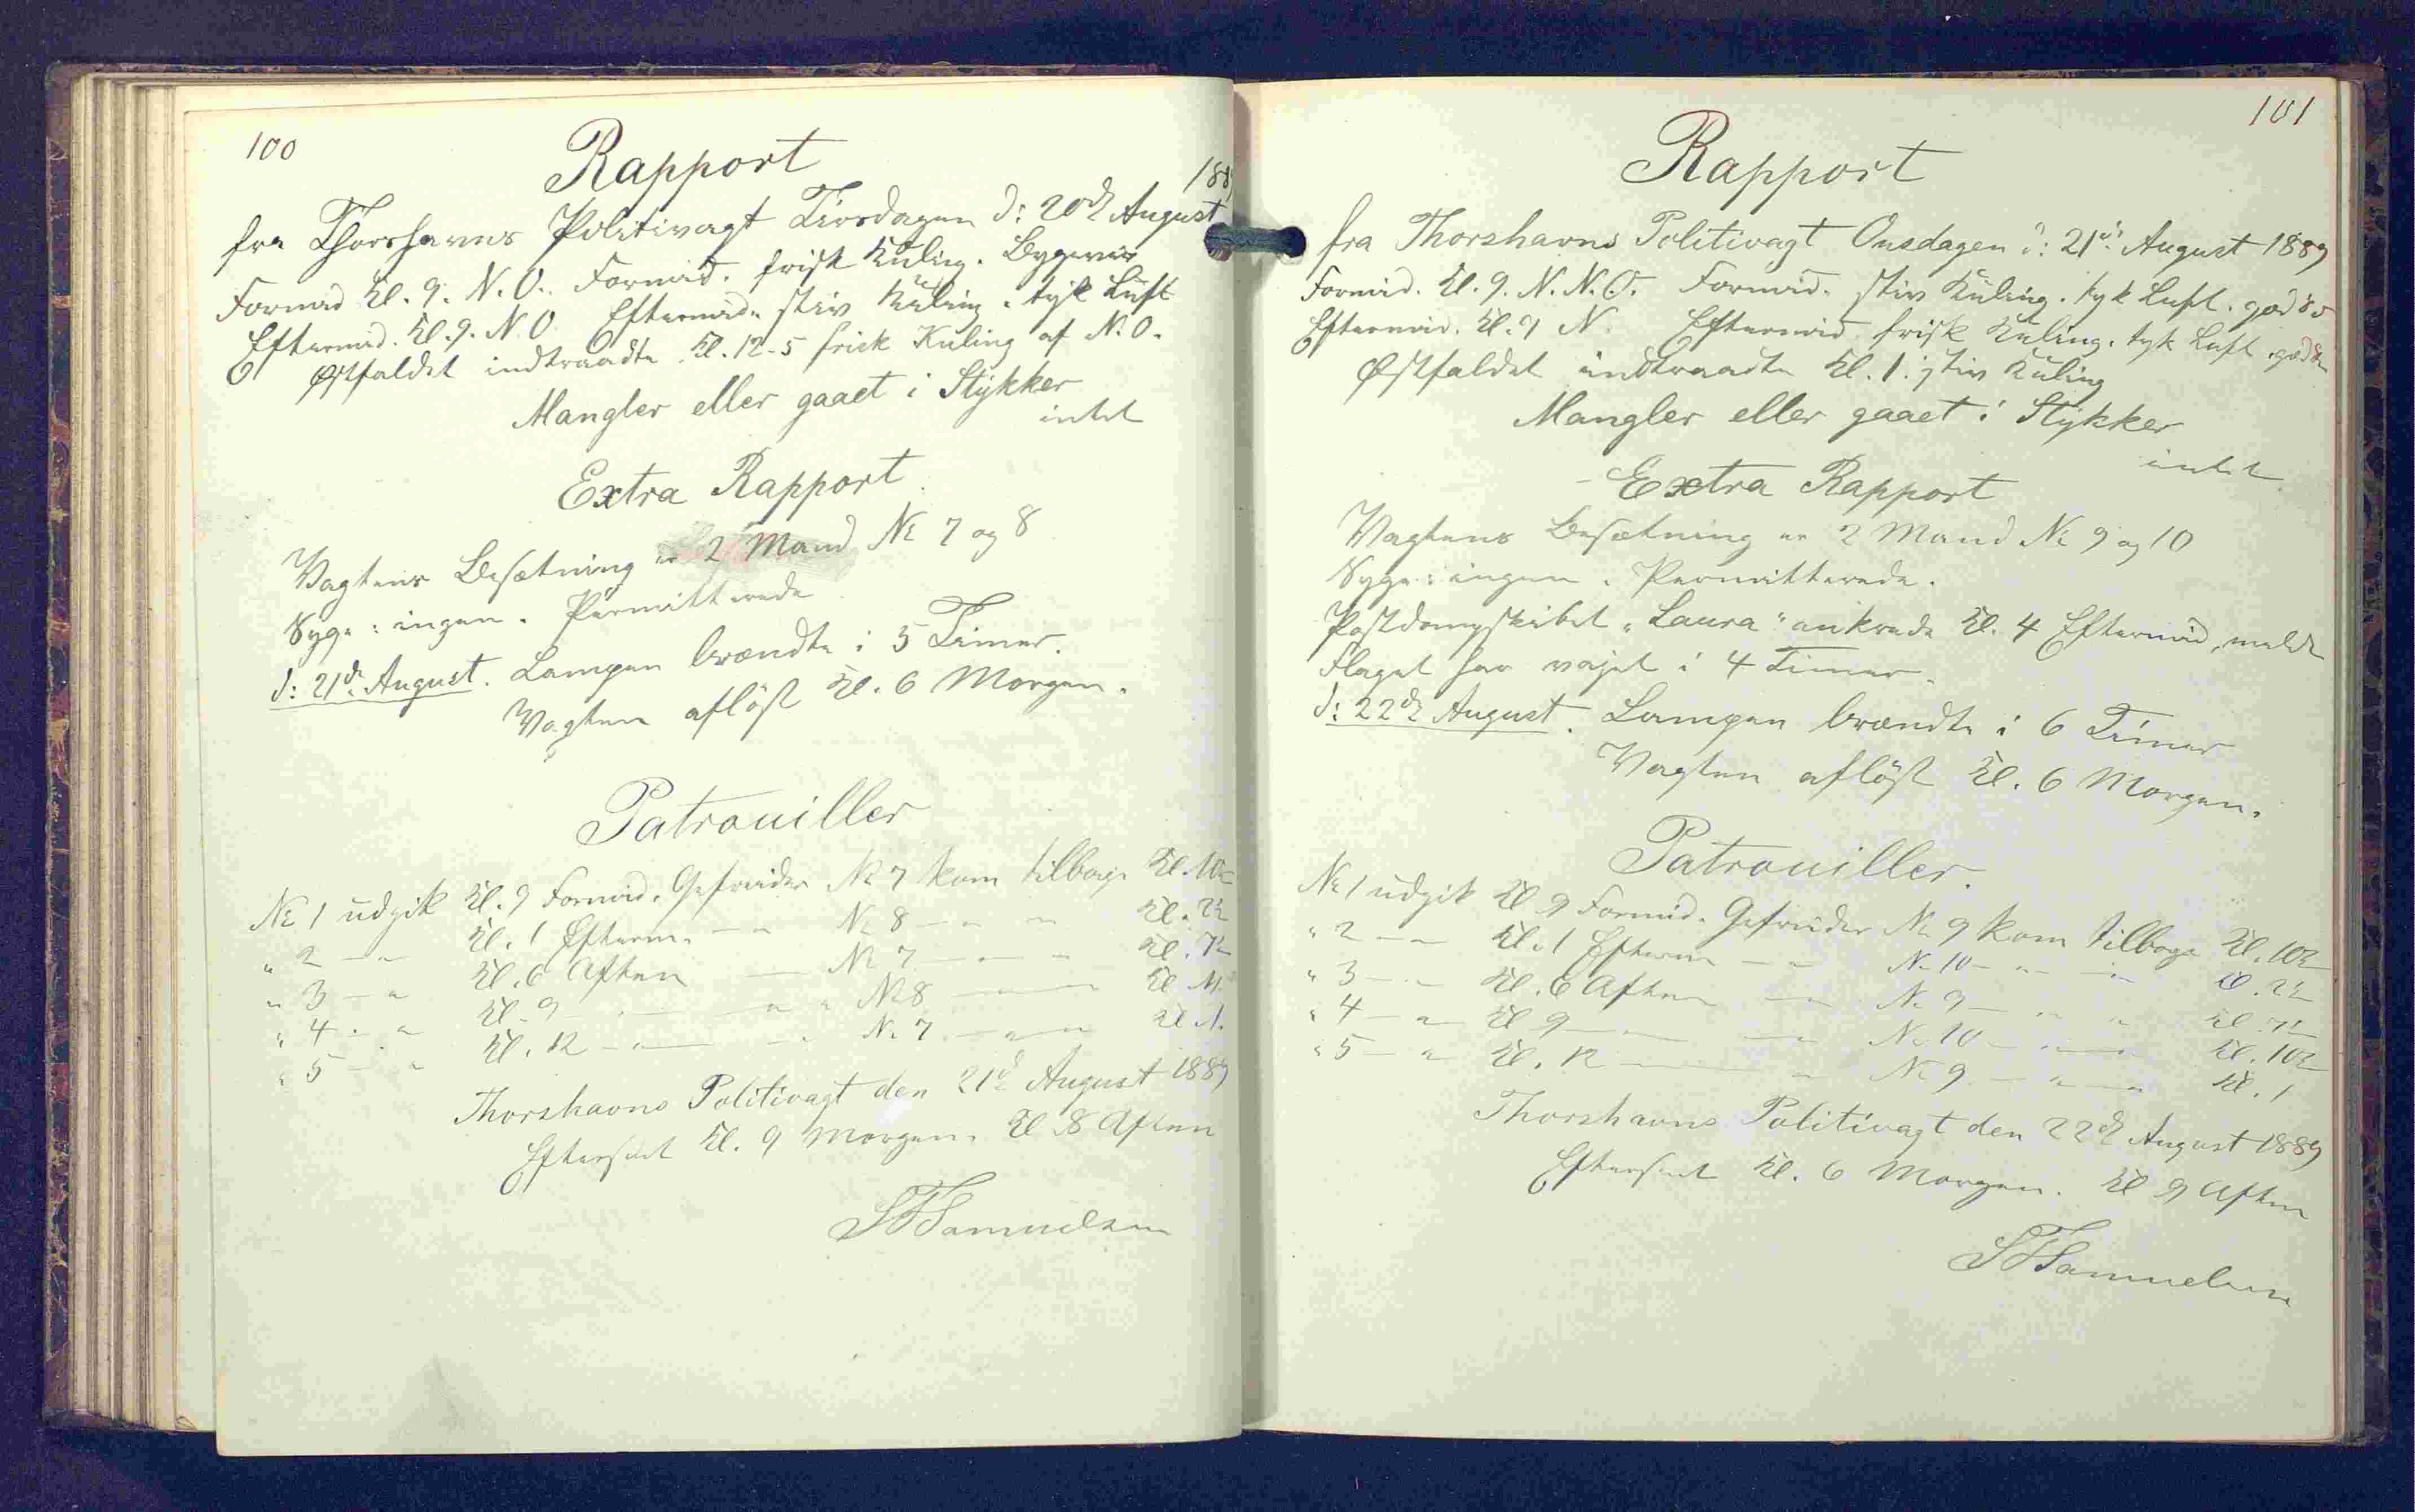 100
Rapport
188
fra Thorshavns Politivagt Tirsdagen d: 20d August
Formd Kl. 9. N.O. Formid. frisk Kuling. Bygeveir
Eftermid. Kl. 9. N.O. Eftermid. stiv Kuling. tyk Luft
Østfaldet indtraadte Kl. 12-5 frisk Kuling af N.O.
Mangler eller gaaet i Stykker
intet
Extra Rapport
Vagtens Besætning er 2 Mand No 7 og 8
Syge: ingen. Permitterede
d: 21de August. Lampen brændte i 5 Timer.
Vagten afløst Kl. 6 Morgen.
Patrouiller
No 1 udgik Kl. 9 Formid. Gefreider No 7 kom tilbage Kl. 10½
" 2 — " Kl. 1 Efterm. — " No 8 — " " Kl. 2½
" 3 — " Kl. 6 Aften — No 7 — " " Kl. 7½
" 4 — " Kl. 9 — " — " " No 8 — Kl. 11.
" 5 — " Kl. 12 — " — " No 7 — " " Kl. 1.
Thorshavns Politivagt den 21d August 1889
Efterseet Kl. 9 Morgen. Kl 8 Aften
Samuelsen
101
Rapport
fra Thorshavns Politivagt Onsdagen d: 21d August 1889
Formid. Kl. 9. N.N.O. Formid. stiv Kuling. tyk Luft.
Eftermid. Kl. 9 N. Eftermid frisk Kuling. tyk Luft.
Østfaldet indtraadte Kl. 1. stiv Kuling
Mangler eller gaaet i Stykker
intet
Extra Rapport
Vagtens Besætning er 2 Mand No 9 og 10
Syge: ingen. Permitterede.
Postdampskibet "Laura" ankrede Kl. 4 Eftermid,
Flaget har vajet i 4 Timer.
d: 22de August. Lampen brændte i 6 Timer
Vagten afløst Kl. 6 Morgen.
Patrouiller.
No 1 udgik Kl 9 Formid. Gefreider No 9 kom tilbage Kl. 10½
" 2 — " Kl. 1 Efterm — " No 10 — " — " Kl. 2½
" 3 — " Kl. 6 Aften — " No 9 — " " Kl 7½
" 4 — " Kl 9 — " — " No 10 — " — Kl. 10½
" 5 — " Kl. 12 — " No 9 — " — " Kl. 1
Thorshavns Politivagt den 22de August 1889
Efterseet Kl. 6 Morgen. Kl 9 Aften
Samuelsen